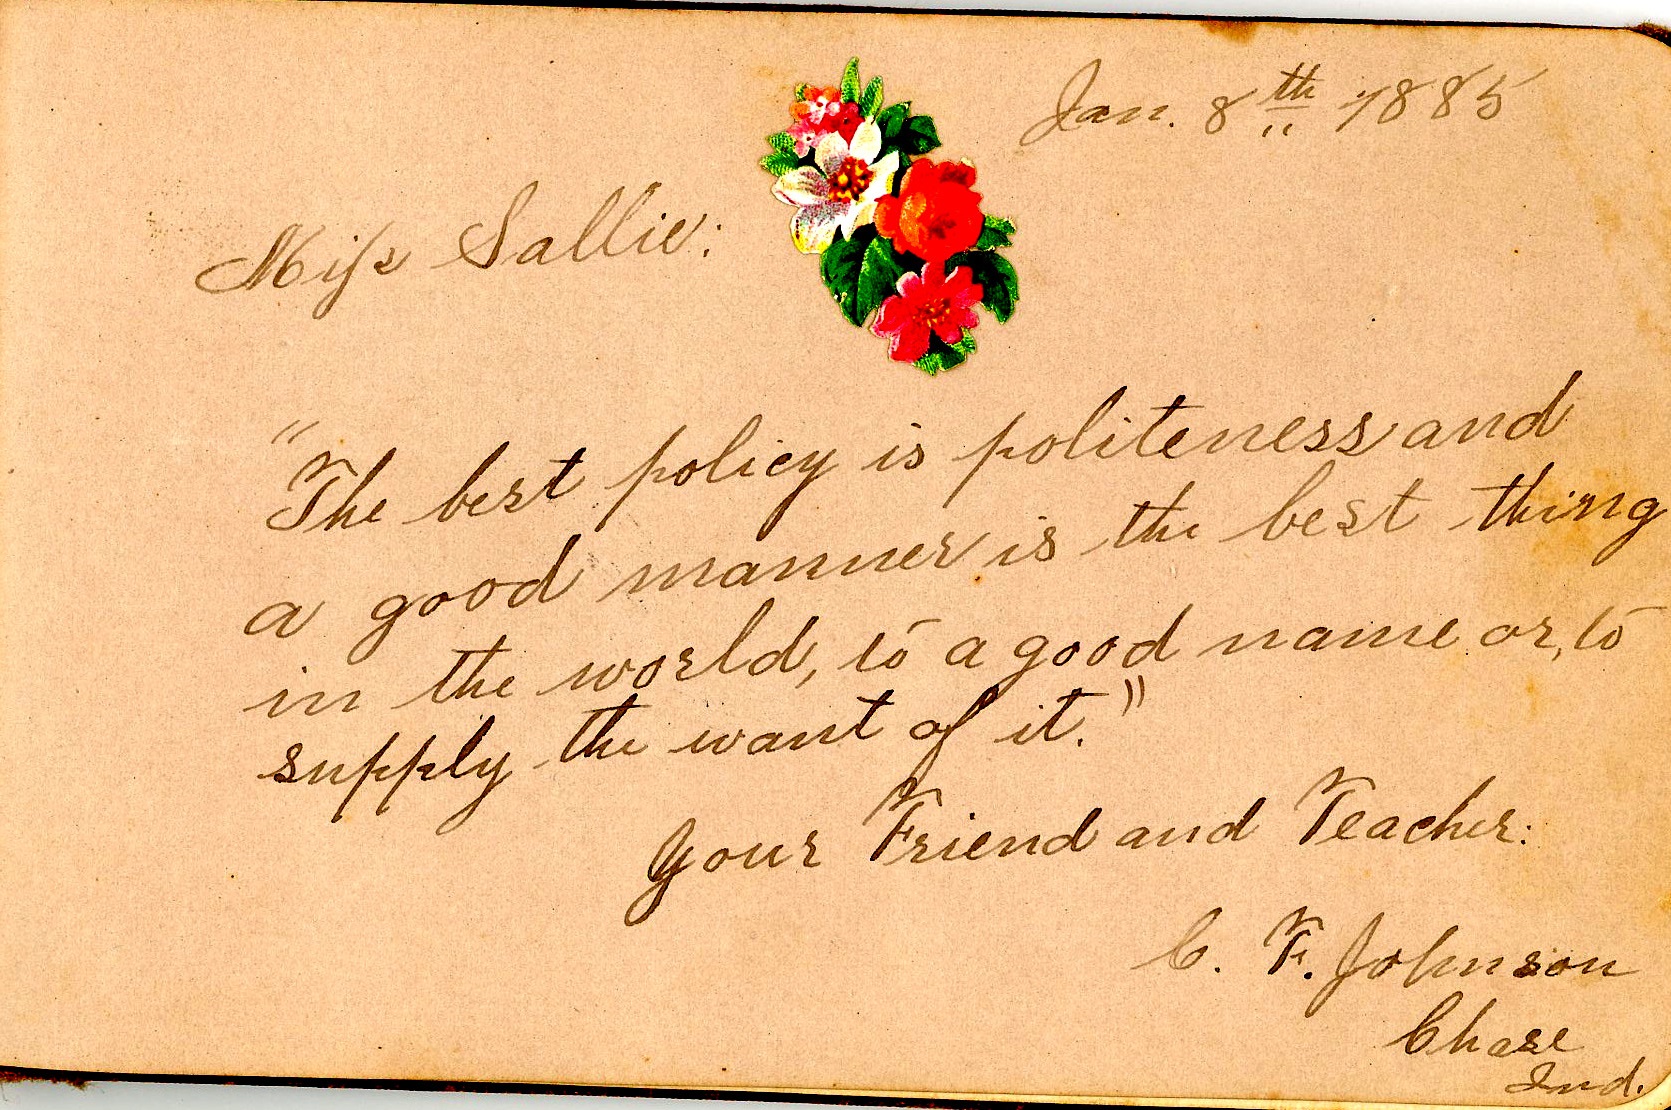 Jan. 8th 1885
Miss Sallie:
"The best policy is politeness and
a good manner is the best thing
in the world, to a good name or, to
supply the want of it."
Your Friend and Teacher:
C. F. Johnson
Chase
Ind.